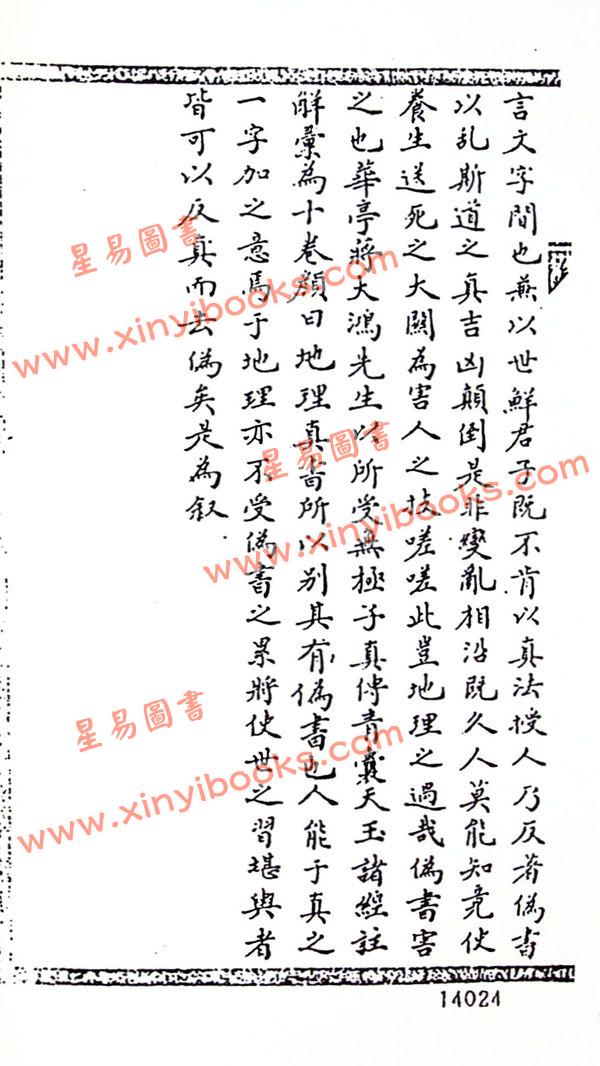 言文字間也兼以世鮮君子既不肯以真法授人乃反著偽書
以乱斯道之真吉凶顛倒是非變亂相沿既久人莫能知竟使
養生送死之大關為害人之技嗟嗟此豈地理之過哉偽書害
之也華亭蔣大鴻先生以所受無極子真傳青囊天玉諸經註
解彙為十卷顏曰地理真書所以别其有偽書也人能于真之
一字加之意焉于地理亦不受偽書之累將使世之習堪輿者
皆可以反真而去偽矣是為叙
星易圖書
www.xinyibooks.com
星易圖書
www.xinyibooks.com
星易圖書
www.xinyibooks.com
14024